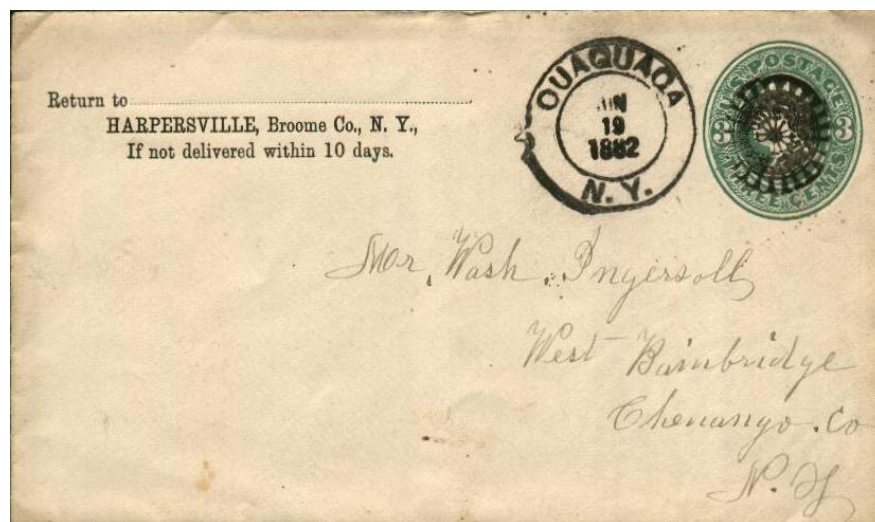 Return to
HARPERSVILLE, Broome Co., N. Y.,
If not delivered within 10 days.
OUAQUAQA
JUN
19
1882
N. Y.
U.S. POSTAGE
3 3
THREE CENTS
Mr, Wash. Ingersoll
West Bainbridge
Chenango. Co
N. Y